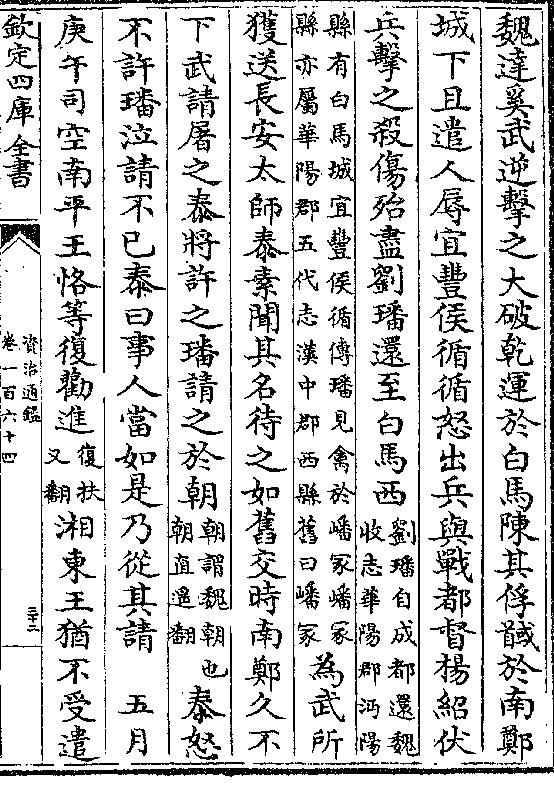 魏達奚武逆擊之大破乾運於白馬陳其俘馘於南鄭
城下且遣人辱宜豐侯循循怒出兵與戰都督楊紹伏
兵擊之殺傷殆盡劉璠還至白馬西劉璠自成都還魏收志華陽郡沔陽
縣有白馬城宜豐侯循傳璠見禽於嶓冢嶓冢縣亦屬華陽郡五代志漢中郡西縣舊曰嶓冢為武所
獲送長安太師泰素聞其名待之如舊交時南鄭久不
下武請屠之泰將許之璠請之於朝朝謂魏朝也朝直遥翻泰怒
不許璠泣請不已泰曰事人當如是乃從其請 五月
庚午司空南平王恪等復勸進復扶又翻湘東王猶不受遣
欽定四庫全書
資治通鑑
卷一百六十四
三十二